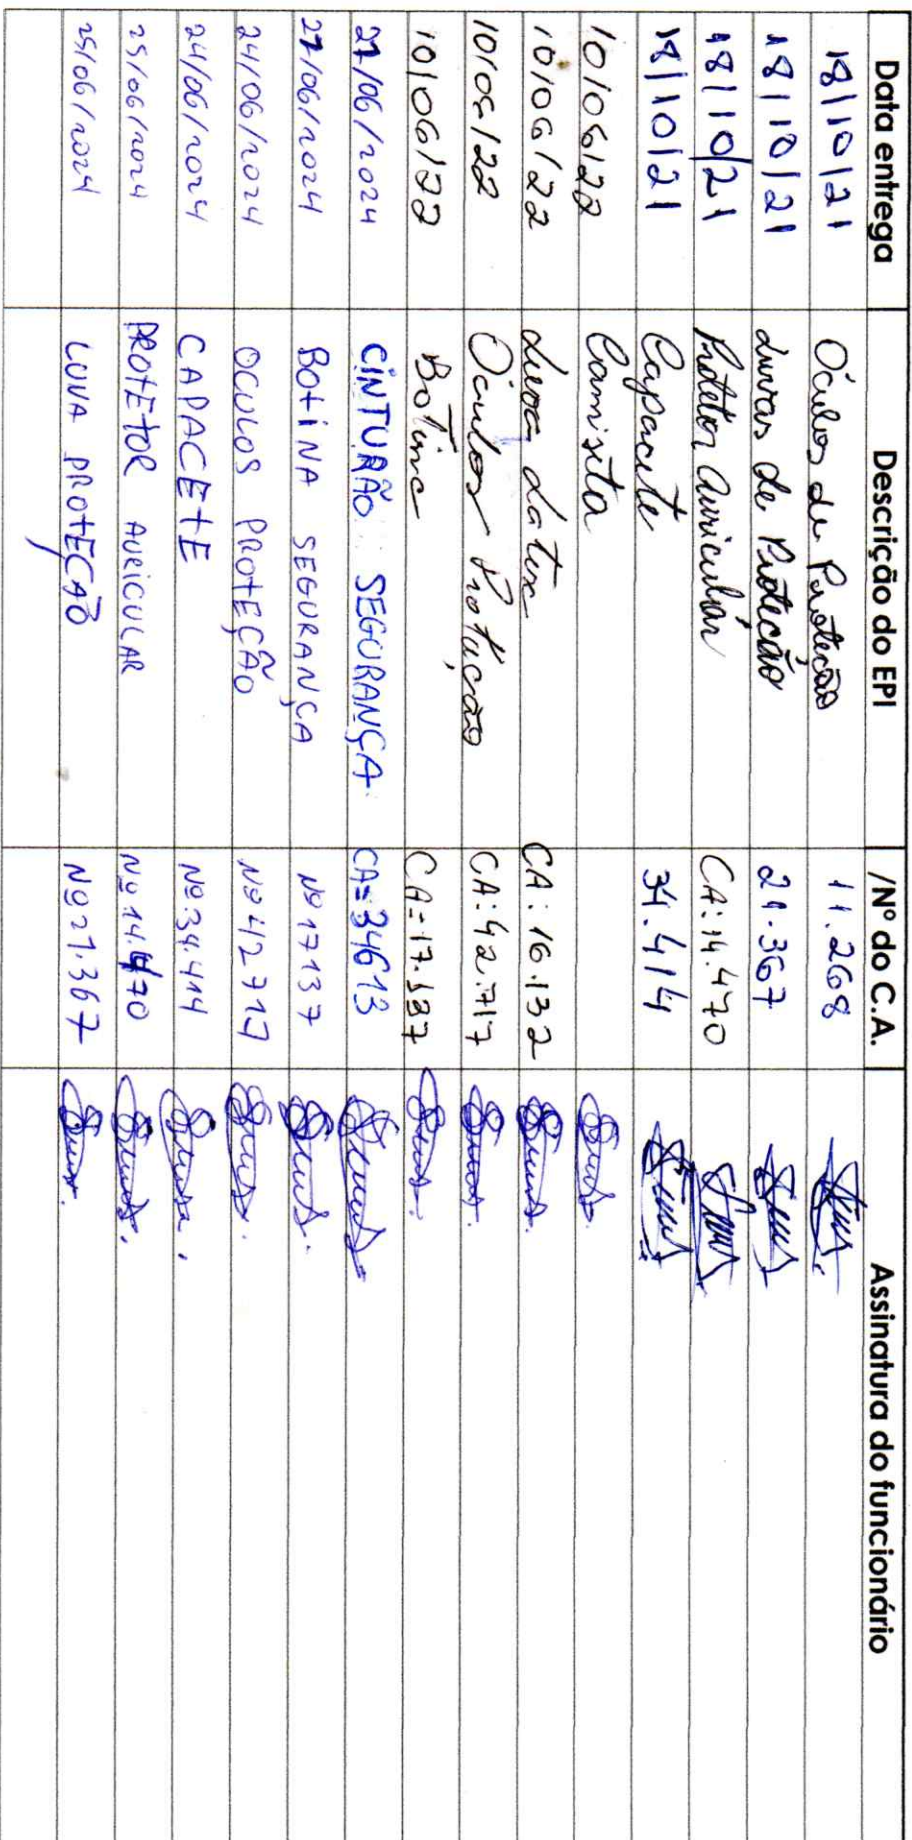 Data entrega Descrição do EPI /Nº do C.A. Assinatura do funcionário
18/10/21 Óculos de Proteção 11.268
18/10/21 Luvas de Proteção 21.367
18/10/21 Protetor auricular CA: 14.470
18/10/21 Capacete 34.414
10/06/22 Camiseta
10/06/22 Luva Latex CA: 16.132
10/06/22 Óculos Protução CA: 42.717
10/06/22 Botina CA = 17.137
27/06/2024 CINTURÃO SEGURANÇA. CA = 34613
27/06/2024 BOTINA SEGURANÇA Nº 17137
24/06/2024 OCULOS PROTEÇÃO Nº 42717
24/06/2024 CAPACETE Nº 34.414
25/06/2024 PROTETOR AURICULAR Nº 14.470
25/06/2024 LUVA PROTEÇÃO Nº 21.367